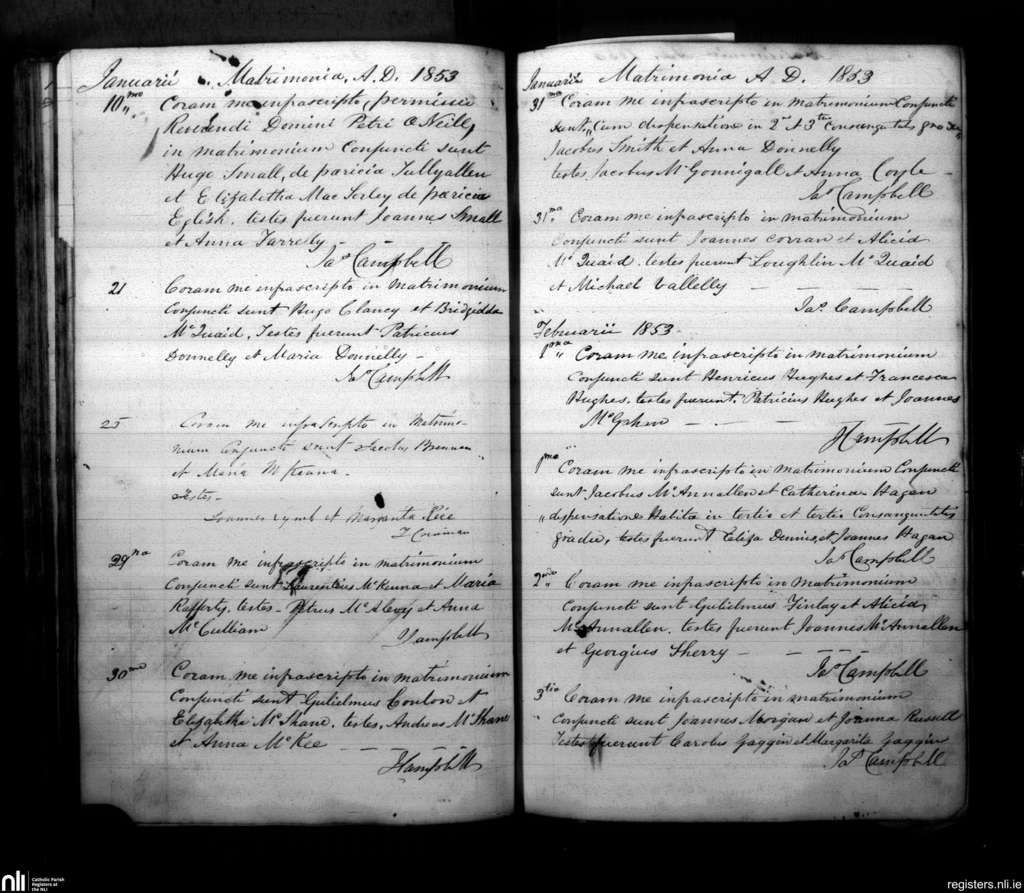 Januarii Matrimonia, A.D. 1853
10mo Coram me infrascripto permissu
Reverendi Domini Petri O Neill
in matrimonium Conjuncti sunt
Hugo Small, de paricia Tullyallen
et Elizabetha Mac Sorley de paricia
Eglish. testes fuerunt Joannes Small
et Anna Farrelly -
Jas Campbell
21 Coram me infrascripto in matrimonium
Conjuncti sunt Hugo Clancy et Bridgidda
McQuaid, Testes fuerunt Patricius
Donnelly et Maria Donnelly -
Jas Campbell
25 Coram me infrascripto in Matrimo-
nium conjuncti sunt Jacobus Brennan
et Maria McKeana -
Testes -
Joannes Lymb et Kee
29na Coram me infrascripto in matrimonium
Conjuncti sunt Laurentius McKenna et Maria
Rafferty, testes - Petrus McAlevy et Anna
McCulliam
J Campbell
30mo Coram me infrascripto in matrimonium
Conjuncti sunt Gulielmus Conlon et
Elizabetha McShane, testes, Andreas McShane
et Anna McKee - - -
J Campbell
Januarii Matrimonia A.D. 1853
31ma Coram me infrascripto in matrimonium Conjuncti
sunt, cum dispensatione in 2do et 3tio
Jacobus Smith et Anna Donnelly
testes Jacobus McGonnigall et Anna Coyle -
Jas Campbell
31ma Coram me infrascripto in matrimonium
Conjuncti sunt Joannes Corran et Alicia
McQuaid. testes fuerunt Loughlin McQuaid
et Michael Vallelly - - -
Jas. Campbell
Februarii 1853 -
1ma Coram me infrascripto in matrimonium
Conjuncti sunt Henricus Hughes et Francesca
Hughes. testes fuerunt. Patricius Hughes et Joannes
- - -
J Campbell
1mo Coram me infrascripto in matrimonium Conjuncti
sunt Jacobus McAnnallen et Catherina Hagan
dispensatione Habita in tertio et tertio Consanguinitatis
gradu, testes fuerunt Eliza Dennis et Joannes Hagan
Jas Campbell
2ndo Coram me infrascripto in matrimonium
Conjuncti sunt Gulielmus Finlay et Alicia
McAnnallen. testes fuerunt Joannes McAnnallen
et Georgius Sherry - - - -
Jas Campbell
3tio Coram me infrascripto in matrimonium
Conjuncti sunt Joannes Morgan et Joanna Russell
Testes fuerunt Carolus Gaggin et Margarita Gaggin
Jas Campbell
nli Catholic Parish
Registers at
the NLI
registers.nli.ie